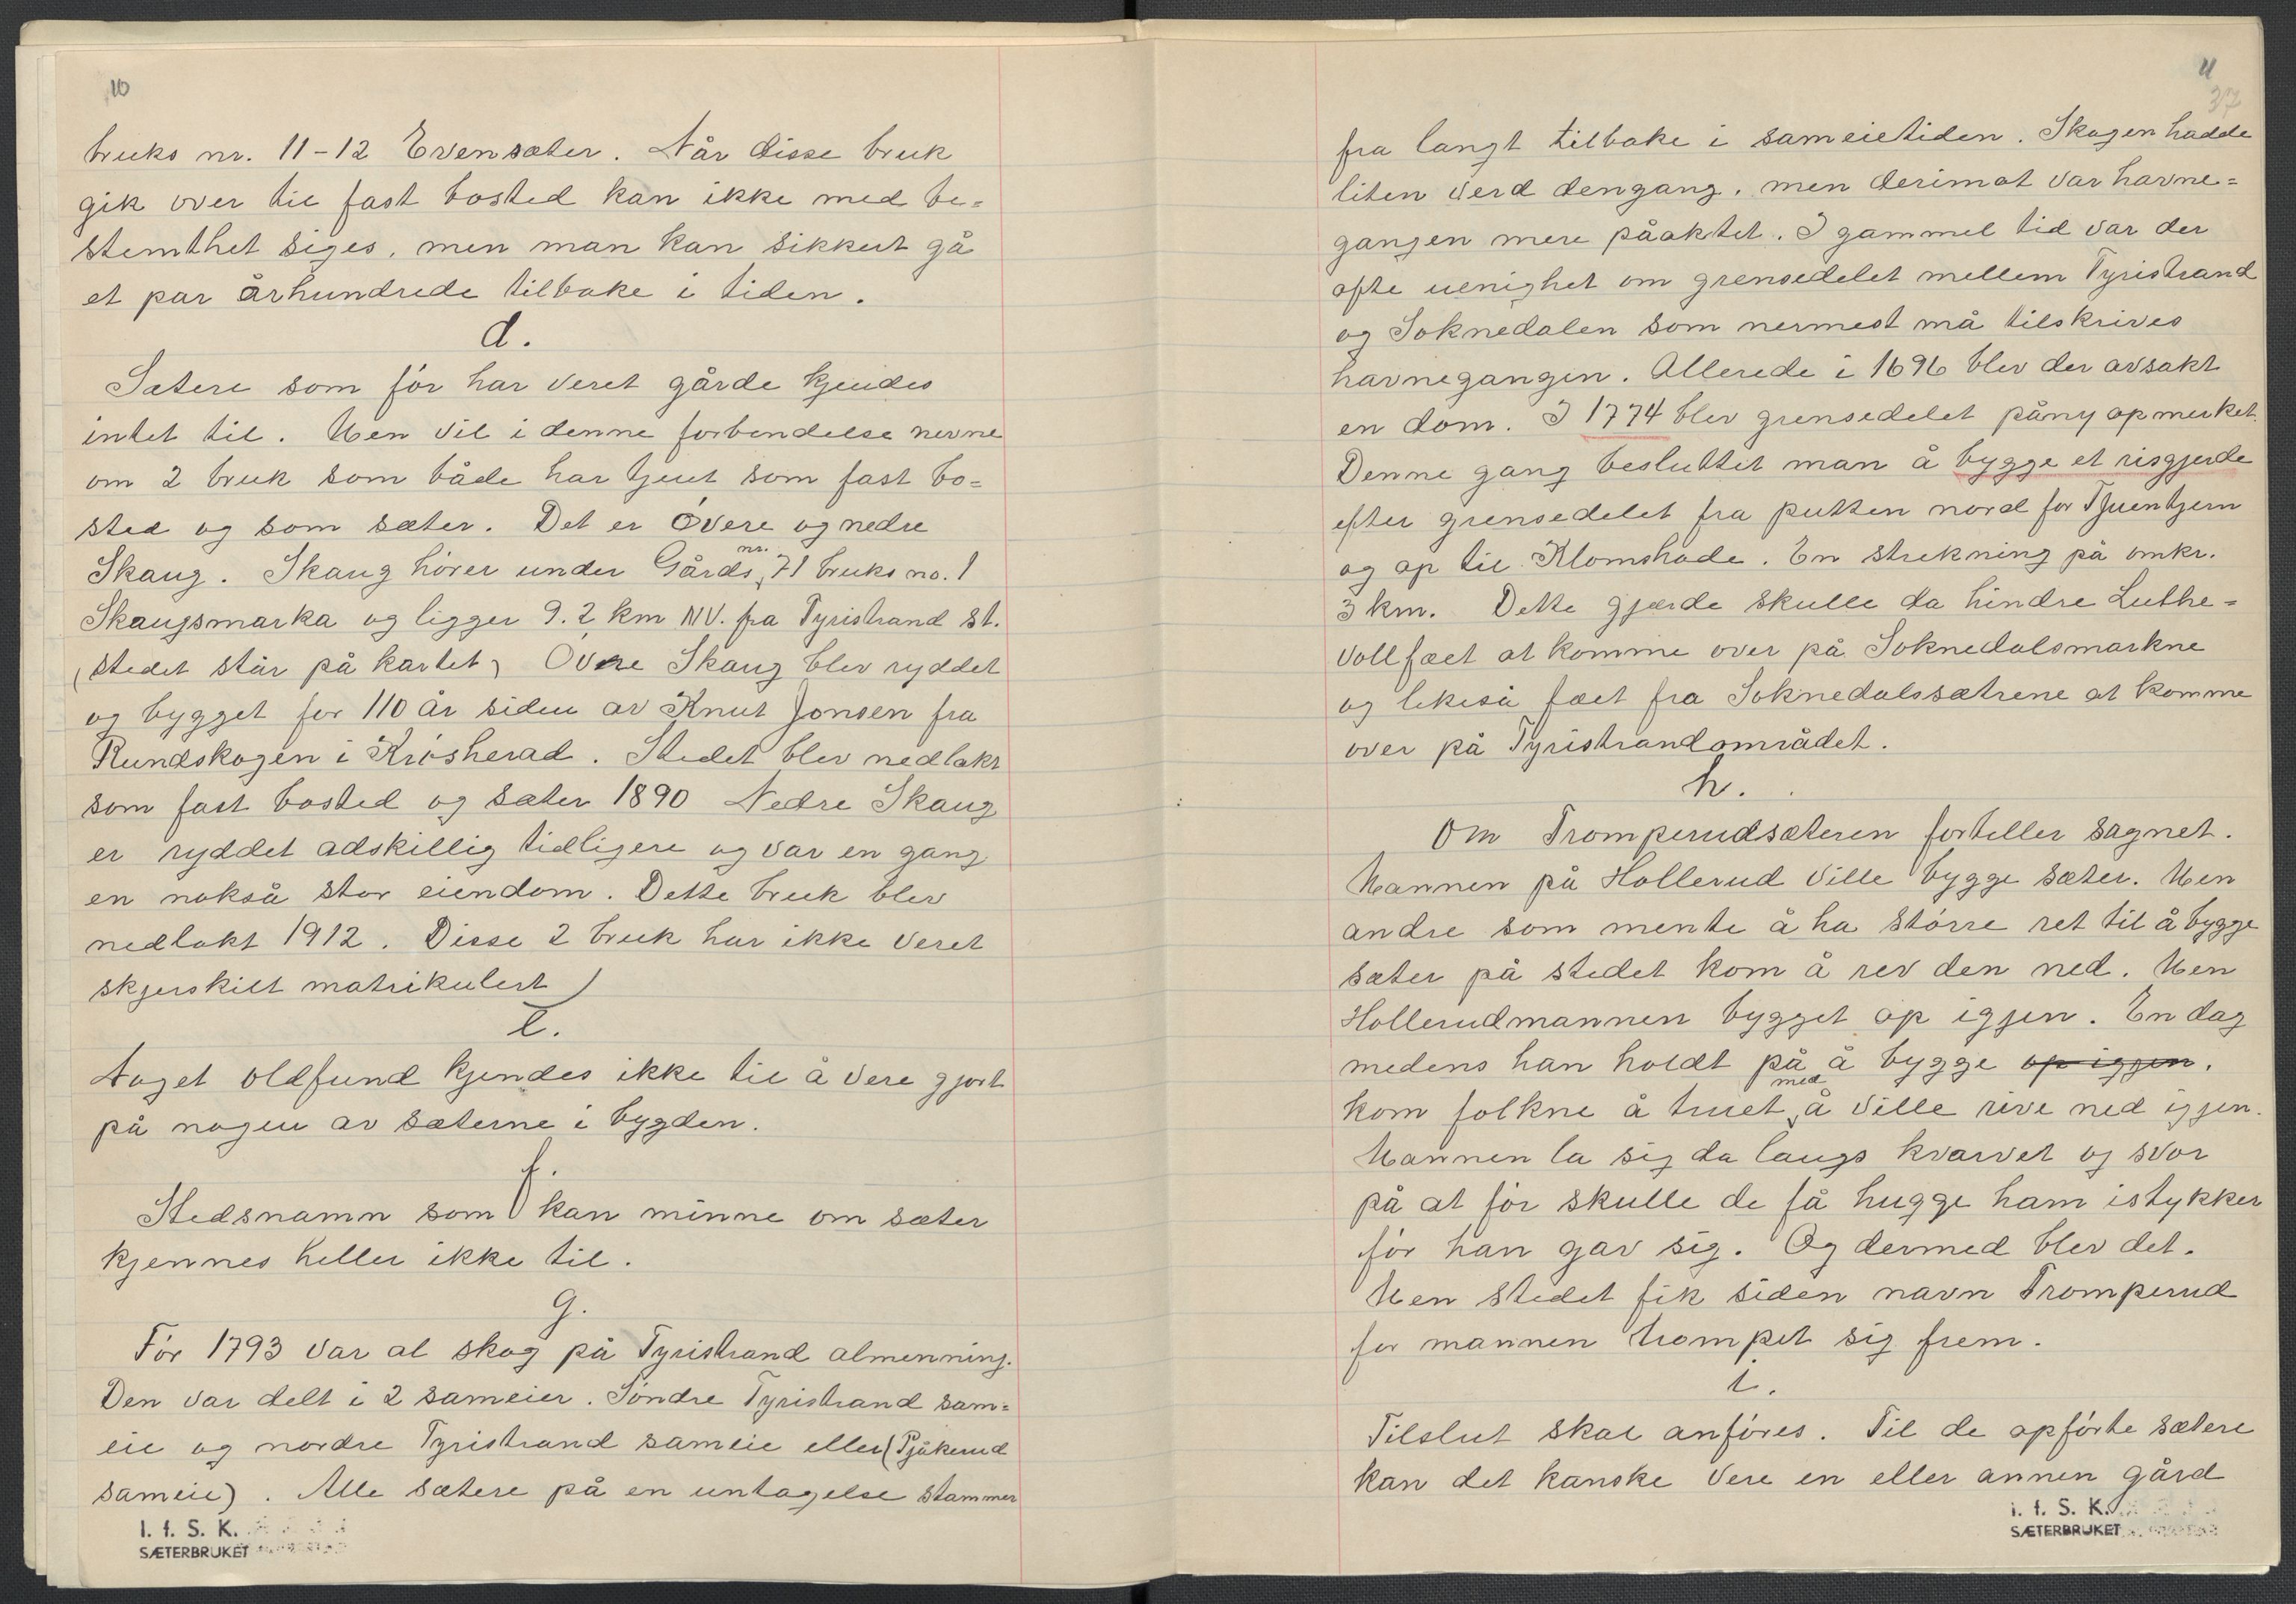 10
bruks nr. 11-12 Evensæter. Når disse bruk
gik over til fast bosted kan ikke med be=
stemthet siges, men man kan sikkert gå
et par århundrede tilbake i tiden.
d.
Sætere som før har veret gårde kjendes
intet til. Men vil i denne forbendelse nevne
om 2 bruk som både har tjent som fast bo=
sted og som sæter. Det er Óvere og nedre
Skaug. Skaug hører under Gårds nr. 71 bruks no. 1
Skaugsmarka og ligger 9.2 km NV. fra Tyristrand st.
(stedet står på kartet) Óvere Skaug blev ryddet
og bygget for 110 år siden av Knut Jonsen fra
Rundskogen i Krósherad. Stedet blev nedlakt
som fast bosted og sæter 1890 Nedre Skaug
er ryddet adskillig tidligere og var en gang
en nokså stor eiendom. Dette bruk blev
nedlakt 1912. Disse 2 bruk har ikke veret
skjerskilt matrikulert)
e.
Noget oldfund kjendes ikke til å vere gjort
på nogen av sæterne i bygden.
f.
Stedsnamn som kan minne om sæter
kjennes heller ikke til.
g.
Fór 1793 var al skog på Tyristrand almenning.
Den var delt i 2 sameier. Sóndre Tyristrand sam=
eie og nordre Tyristrand sameie eller (Pjåkerud
sameie). Alle sætere på en untagelse stammer
I. f. S. K.
SÆTERBRUKET
11
37
fra langt tilbake i sameietiden. Skogen hadde
liten verd dengang, men derimot var havne=
gangen mere påaktet. I gammel tid var der
ofte uenighet om grensedelet mellem Tyristrand
og Soknedalen som nermest må tilskrives
havnegangen. Allerede i 1696 blev der avsakt
en dom. I 1774 blev grensedelet påny opmerket.
Denne gang besluttet man å bygge et risgjerde
efter grensedelet fra putten nord for Tjuentjern
og op til Klomshode. En strekning på omkr.
3 km. Dette gjærde skulle da hindre Luthe=
vollfæet at komme over på Soknedalsmarkne
og likeså fæet fra Soknedalssætrene at komme
over på Tyristrandområdet.
h.
Om Tromperudsæteren forteller sagnet.
Mannen på Hollerud ville bygge sæter. Men
andre som mente å ha stórre ret til å bygge
sæter på stedet kom å rev den ned. Men
Hollerudmannen bygget op igjen. En dag
medens han holdt på å bygge op igjen.
kom folkne å truet med å ville rive ned igjen.
Mannen la sig da langs kvarvet og svor
på at fór skulle de få hugge ham istykker
fór han gav sig. Og dermed blev det.
Men stedet fik siden navn Tromperud
for mannen trompet sig frem.
i.
Tilslut skal anfóres. Til de opfórte sætere
kan det kanske vere en eller annen gård
I. f. S. K.
SÆTERBRUKET